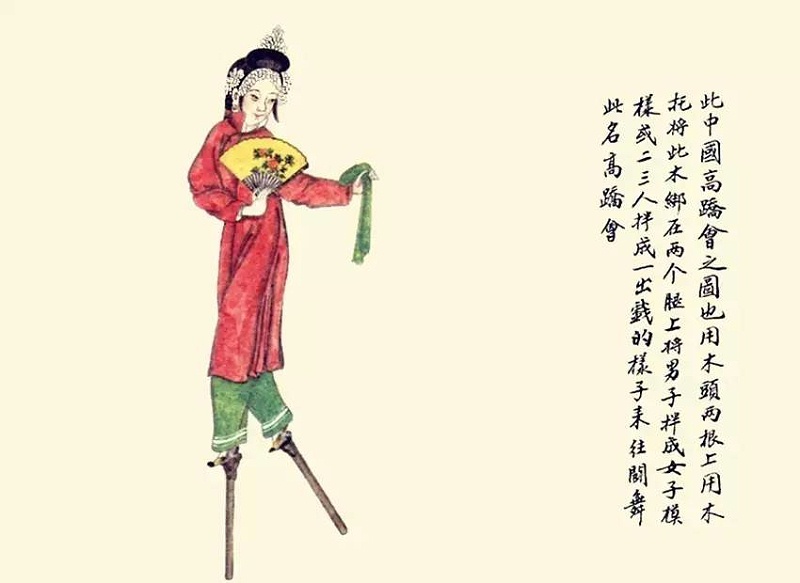 此中國高蹻會之圖也用木頭两根上用木
托将此木綁在两个腿上将男子拌成女子模
樣或二三人拌成一出戲的樣子来往鬭舞
此名高蹻會